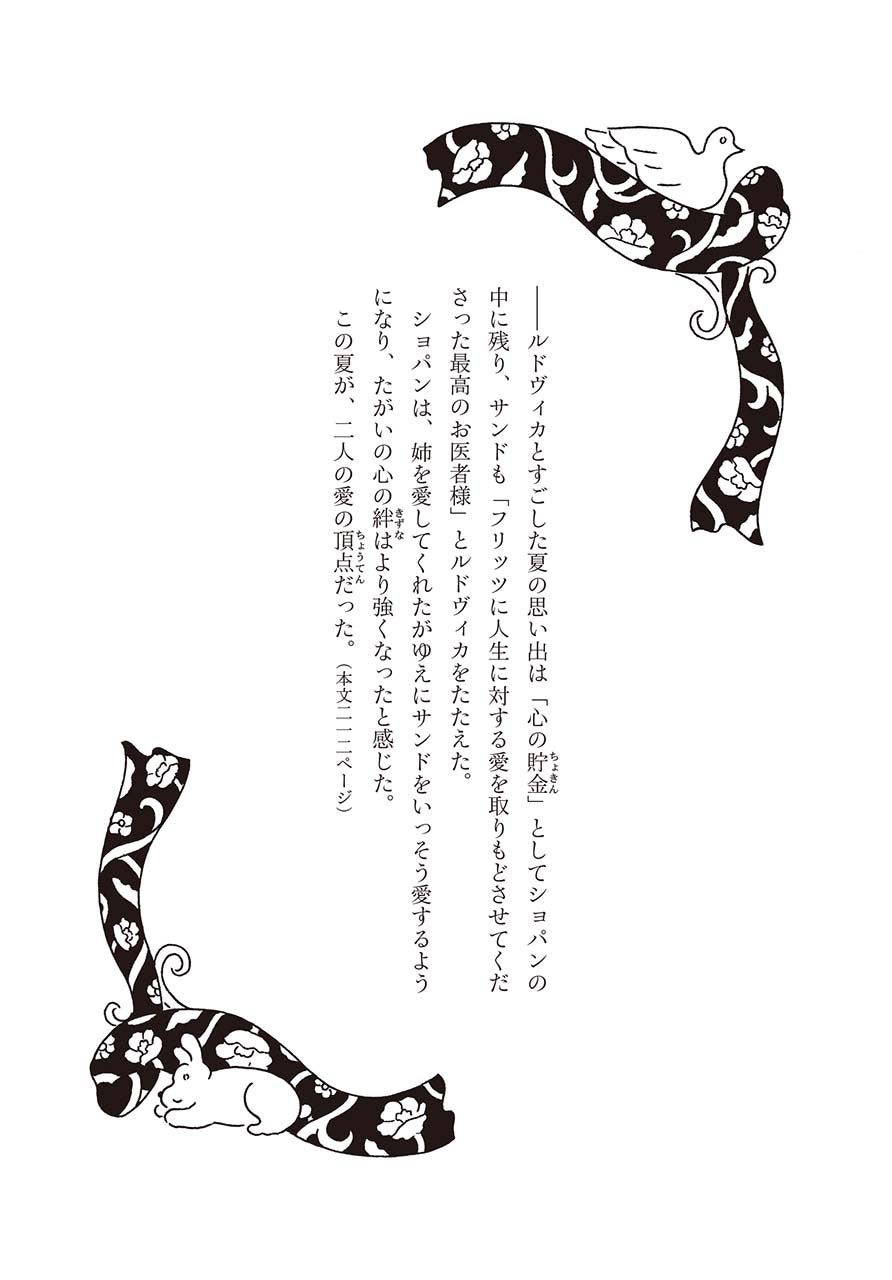 ――ルドヴィカとすごした夏の思い出は「心の貯金」としてショパンの
ちょきん
中に残り、サンドも「フリッツに人生に対する愛を取りもどさせてくだ
さった最高のお医者様」とルドヴィカをたたえた。
ショパンは、姉を愛してくれたがゆえにサンドをいっそう愛するよう
になり、たがいの心の絆はより強くなったと感じた。
きずな
この夏が、二人の愛の頂点だった。（本文二一二ページ）
ちょうてん